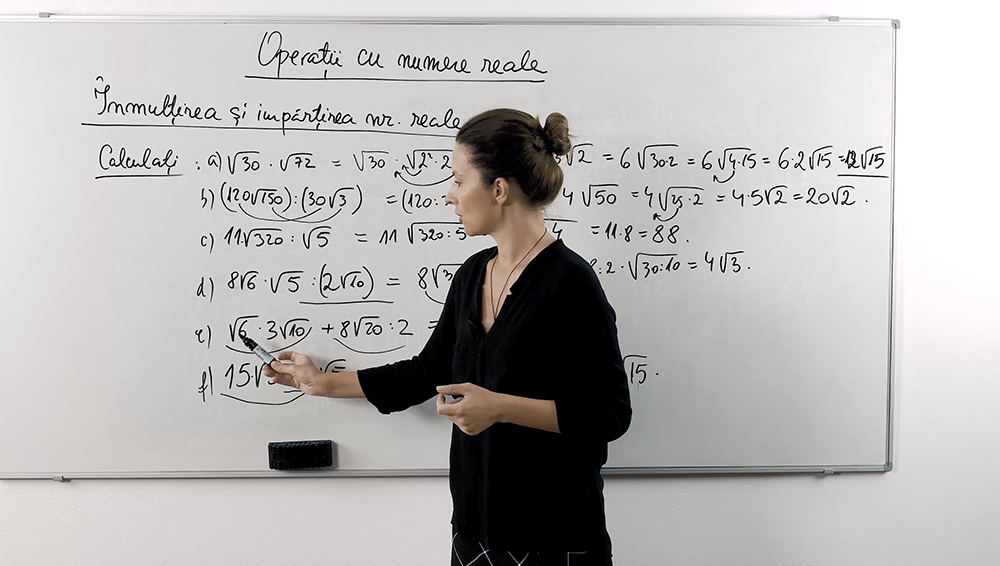 Operații cu numere reale
Înmulțirea și împărțirea nr. reale
Calculați : a) √30 · √72 = √30 · √2² · 2 √2 = 6√30·2 = 6√4·15 = 6·2√15 = 12√15
b) (120√150) : (30√3) = (120: 4√50 = 4√25·2 = 4·5√2 = 20√2 .
c) 11·√320 : √5 = 11 √320:5 = 11·8 = 88 .
d) 8√6 · √5 : (2√10) = 8√3 8:2·√30:10 = 4√3 .
e) √6 · 3√10 + 8√20 : 2 =
f) 15·√ √5 √15 .